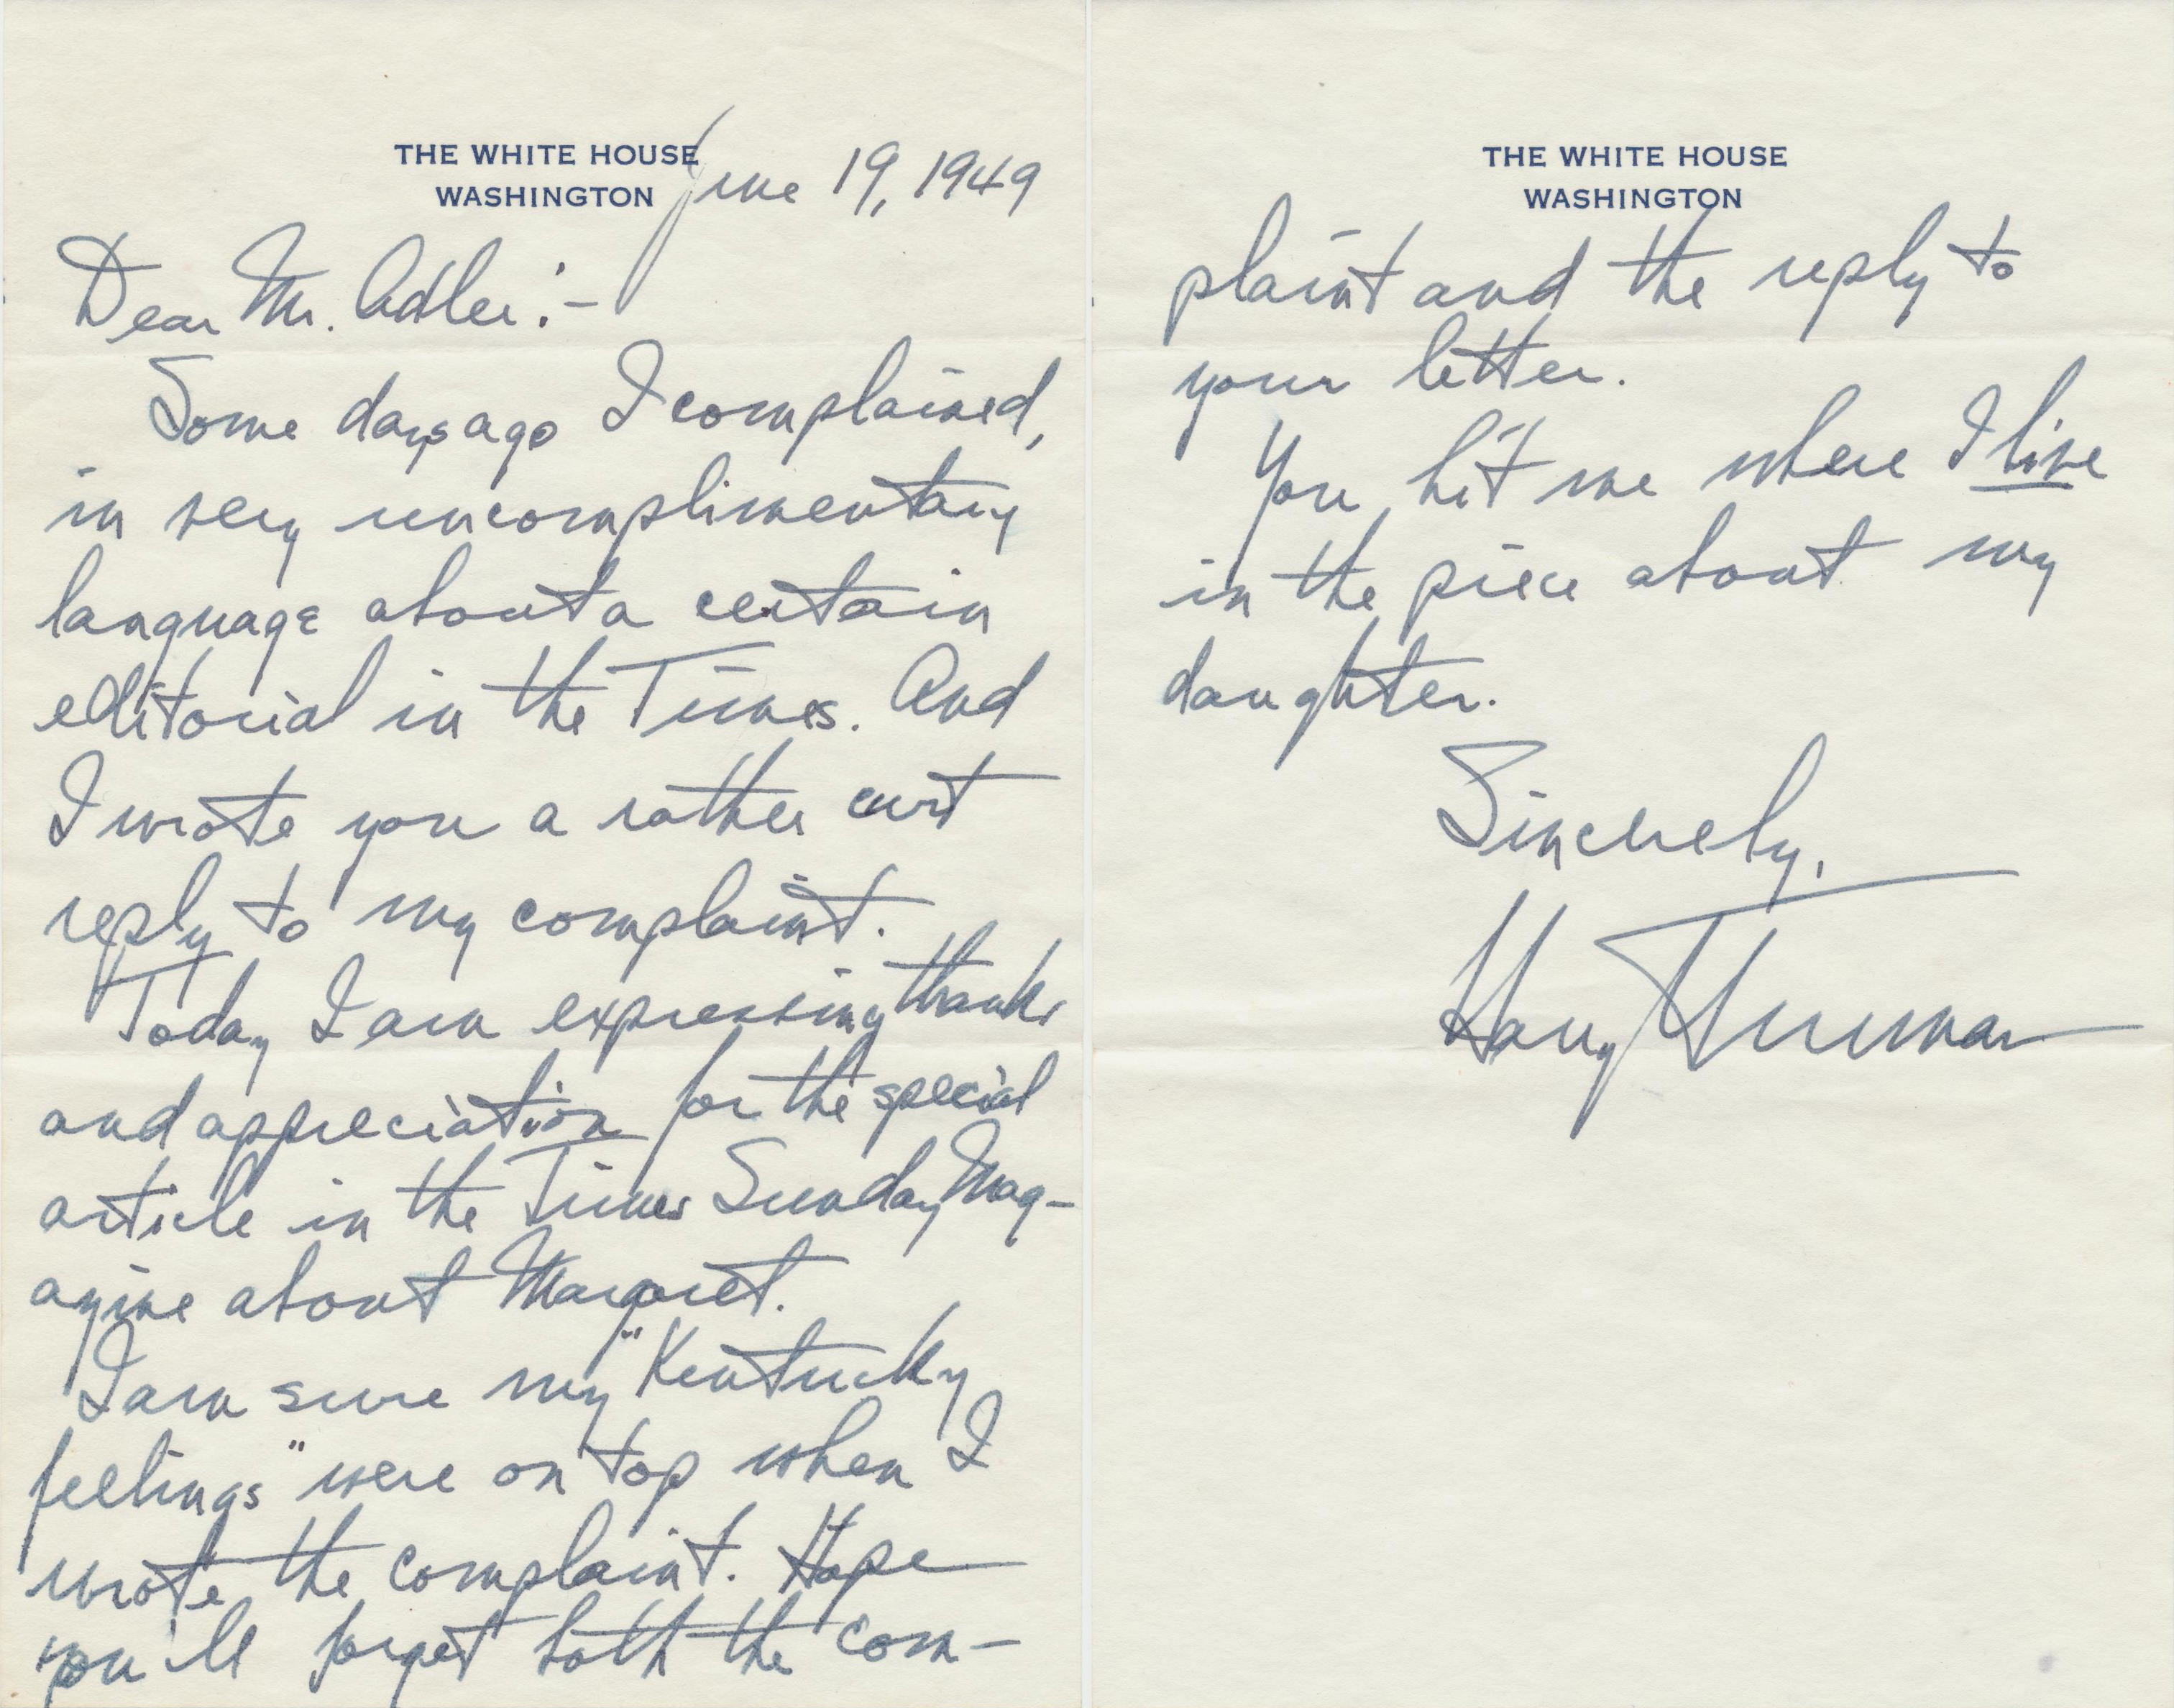 THE WHITE HOUSE
WASHINGTON
June 19, 1949
Dear Mr. Adler:-
Some days ago I complained,
in very uncomplimentary
language about a certain
editorial in the Times. And
I wrote you a rather curt
reply to my complaint.
Today I am expressing thanks
and appreciation for the special
article in the Times Sunday Mag-
azine about Margaret.
I am sure my "Kentucky
feelings" were on top when I
wrote the complaint. Hope
you'll forget both the com-
THE WHITE HOUSE
WASHINGTON
plaint and the reply to
your letter.
You hit me where I live
in the piece about my
daughter.
Sincerely,
Harry Truman